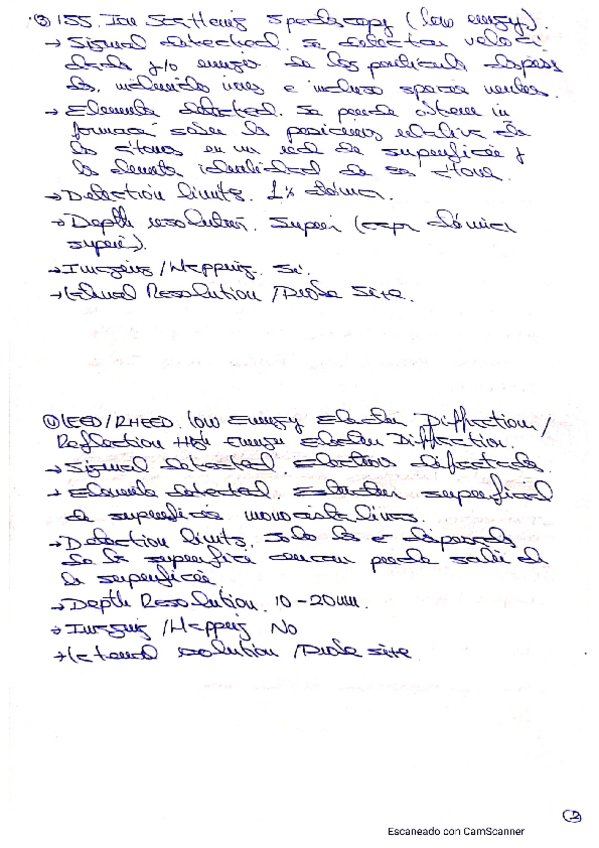 ③ ISS. Ion Scattering Spectroscopy (low energy).
→ Signal detected. Se detectan veloci
dades y/o energía de las partículas dispersa
das, incluyendo iones e incluso especies neutras.
→ Elements detected. Se puede obtener in
formación sobre las posiciones relativas de
los átomos en una red de superficie y
la identidad de átomos.
→ Detection limits. 1% atómico.
→ Depth resolution. Superf (capa atómica
superf).
→ Imaging/Mapping. Sí.
→ Lateral Resolution/Probe Size.
④ LEED/RHEED. low Energy Electron Diffraction/
Reflection High Energy Electron Diffraction.
→ Signal Detected. Electrones difractados.
→ Elements detected. superficial
de superficies monocristalinas.
→ Detection limits. Solo los e⁻ dispersados
de la superficie cercana puede salir de
la superficie.
→ Depth Resolution. 10-20nm.
→ Imaging/Mapping No
→ Lateral resolution/Probe size
②
Escaneado con CamScanner